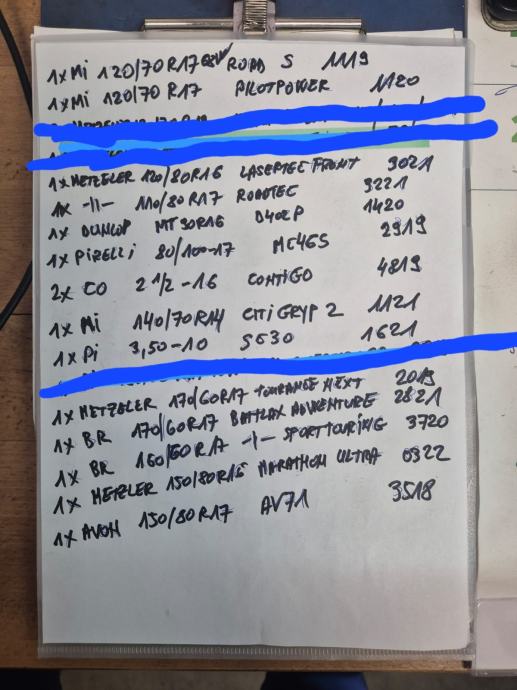 1x Mi 120/70 R17 ROAD 5 1119
1x Mi 120/70 R17 PILOTPOWER 1120
1x METZELER 120/80R16 LASERTEC FRONT 3021
1x -||- 110/80 R17 ROADTEC 3221
1x DUNLOP MT90R16 D402P 1420
1x PIRELLI 80/100-17 MC465 2919
2x CO 2 1/2 -16 CONTIGO 4819
1x Mi 140/70 R14 CITI GRYP 2 1121
1x Pi 3,50-10 SC30 1621
1x METZELER 170/60R17 TOURANCE NEXT 2019
1x BR 170/60R17 BATTLAX ADVENTURE 2821
1x BR 160/60R17 -||- SPORTTOURING 3720
1x METZLER 150/80R16 MARATHON ULTRA 0322
1x AVON 150/80 R17 AV71 3518